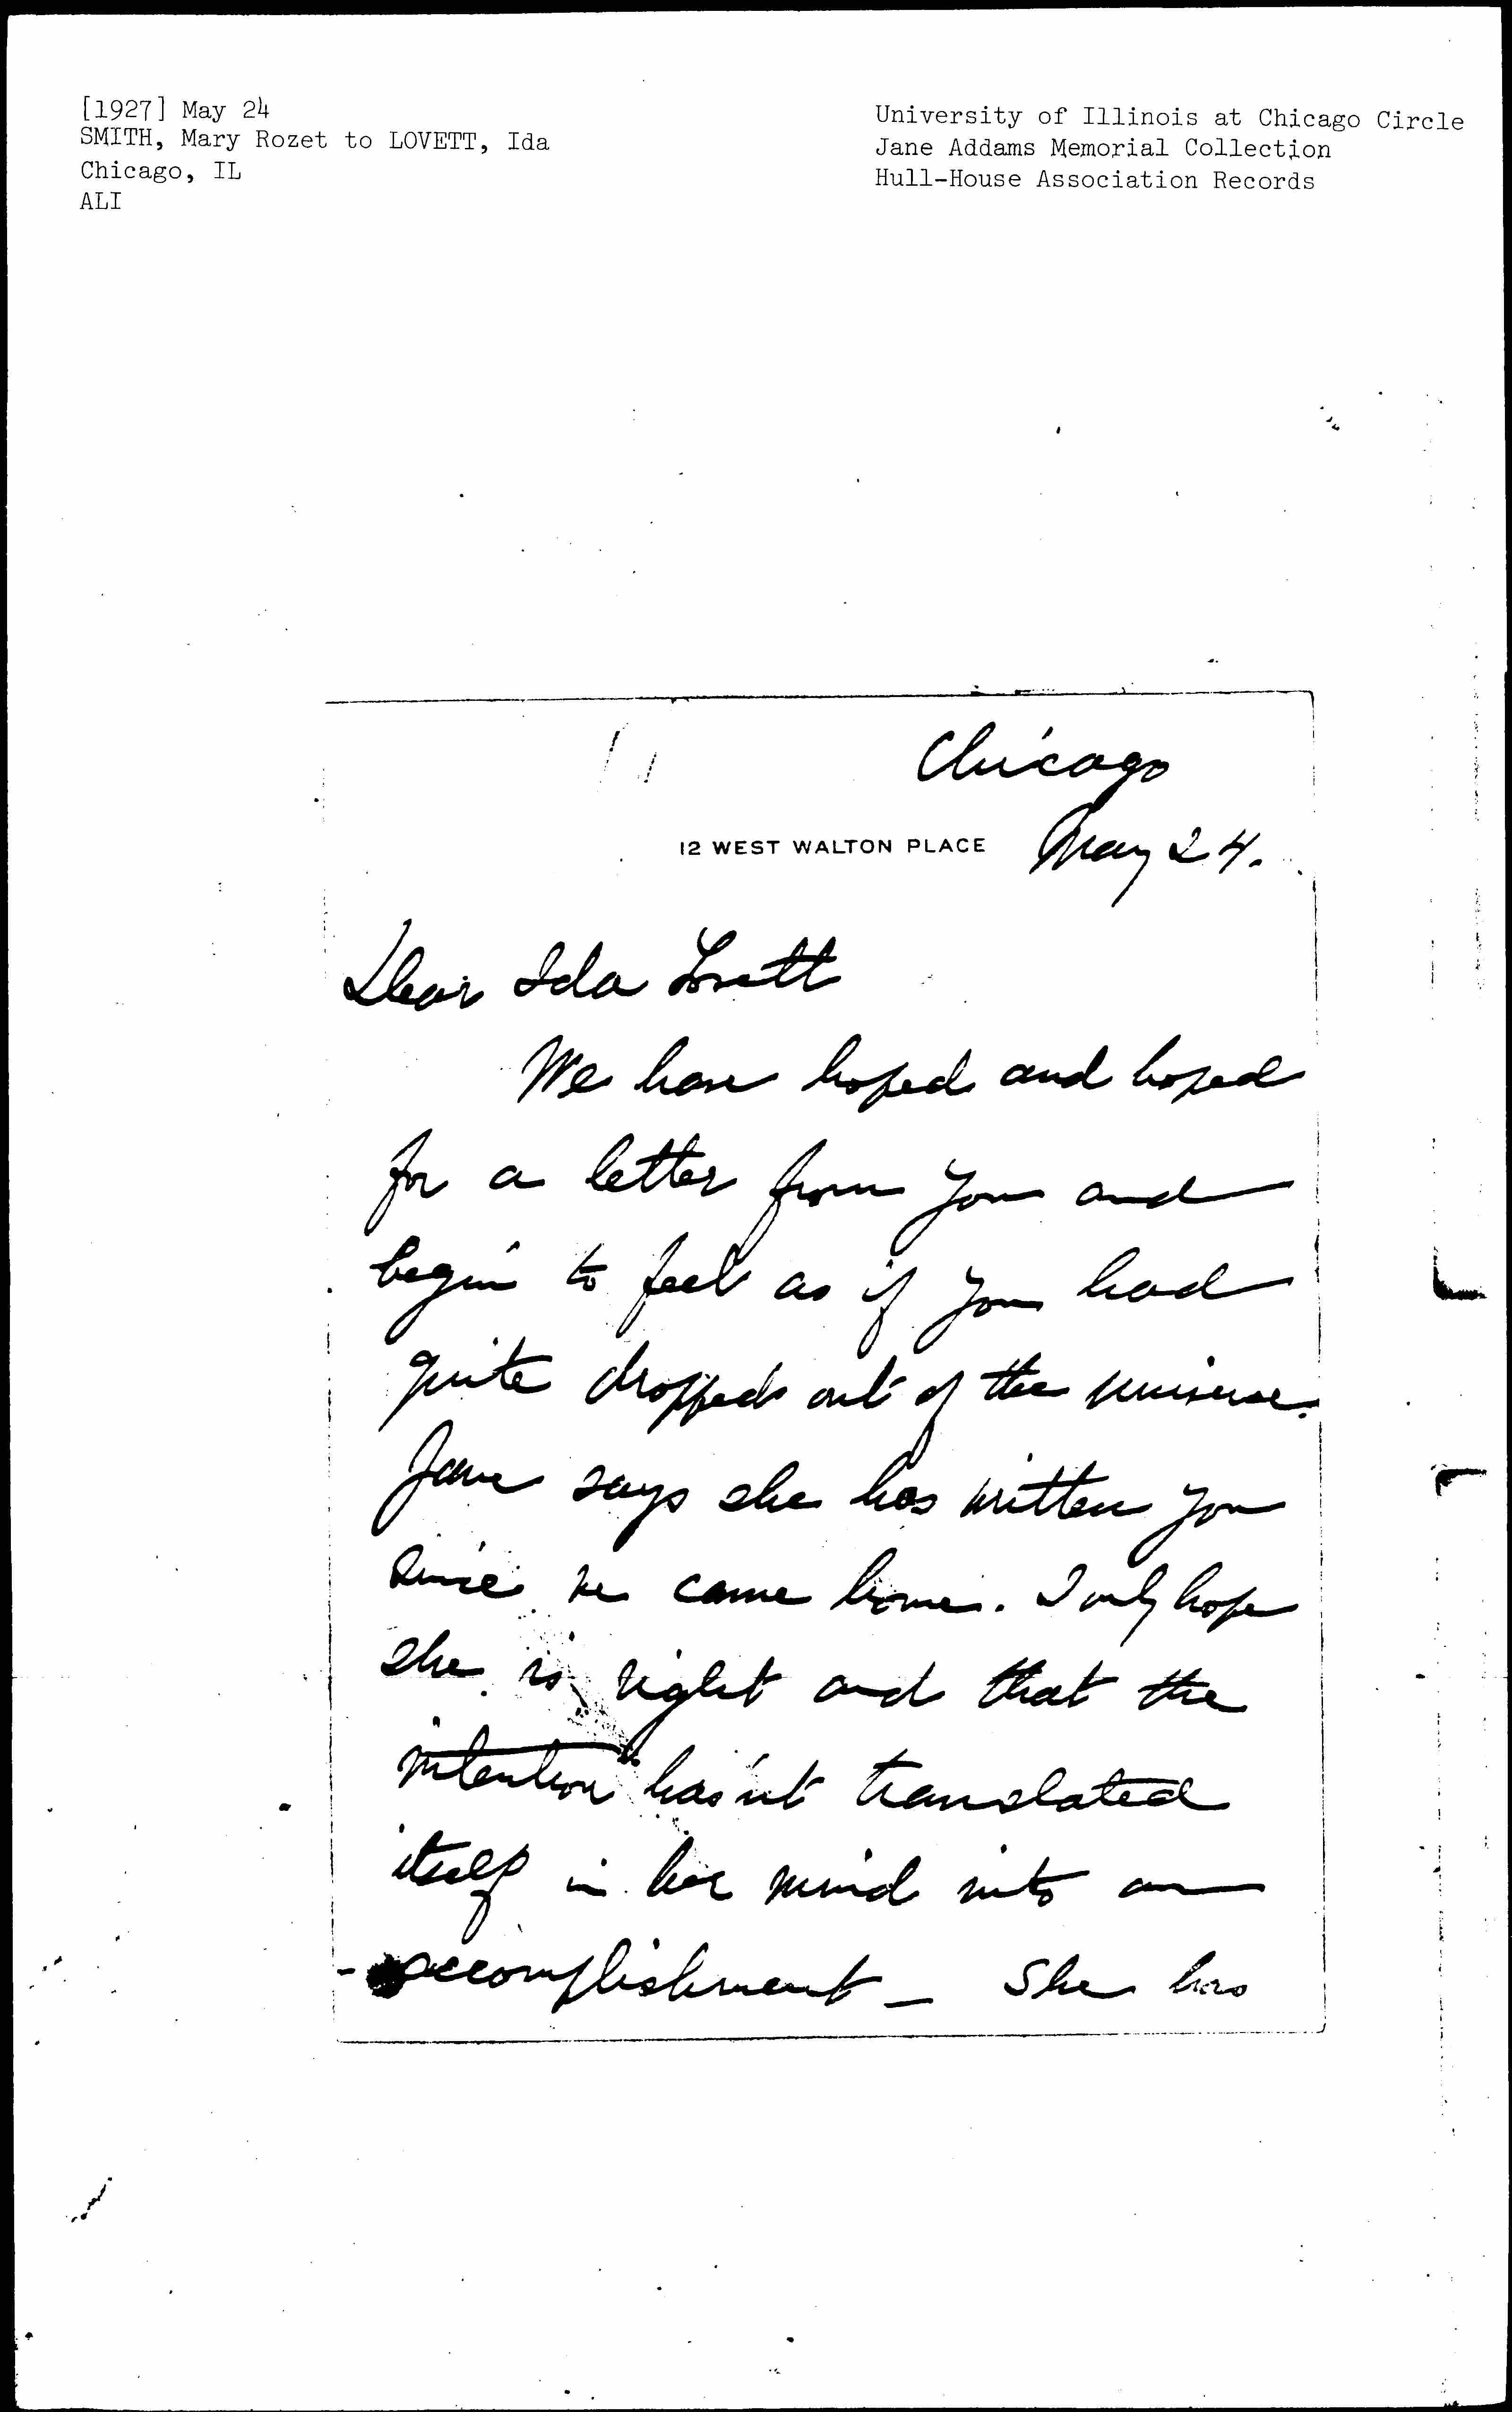 [1927] May 24
SMITH, Mary Rozet to LOVETT, Ida
Chicago, IL
ALI
University of Illinois at Chicago Circle
Jane Addams Memorial Collection
Hull-House Association Records
Chicago
12 WEST WALTON PLACE May 24.
Dear Ida Lovett
We have hoped and hoped
for a letter from you and
begin to feel as if you had
quite dropped out of the universe.
Jane says she has written you
since we came home. I only hope
she is right and that the
intention hasn't translated
itself in her mind into an
accomplishment – She has